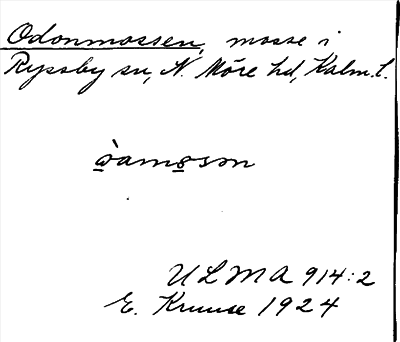 Odonmossen, mosse i
Ryssby sn, N. Möre hd, Kalm. l.
ò̲amo̲sən
ULMA 914:2
E. Kruuse 1924